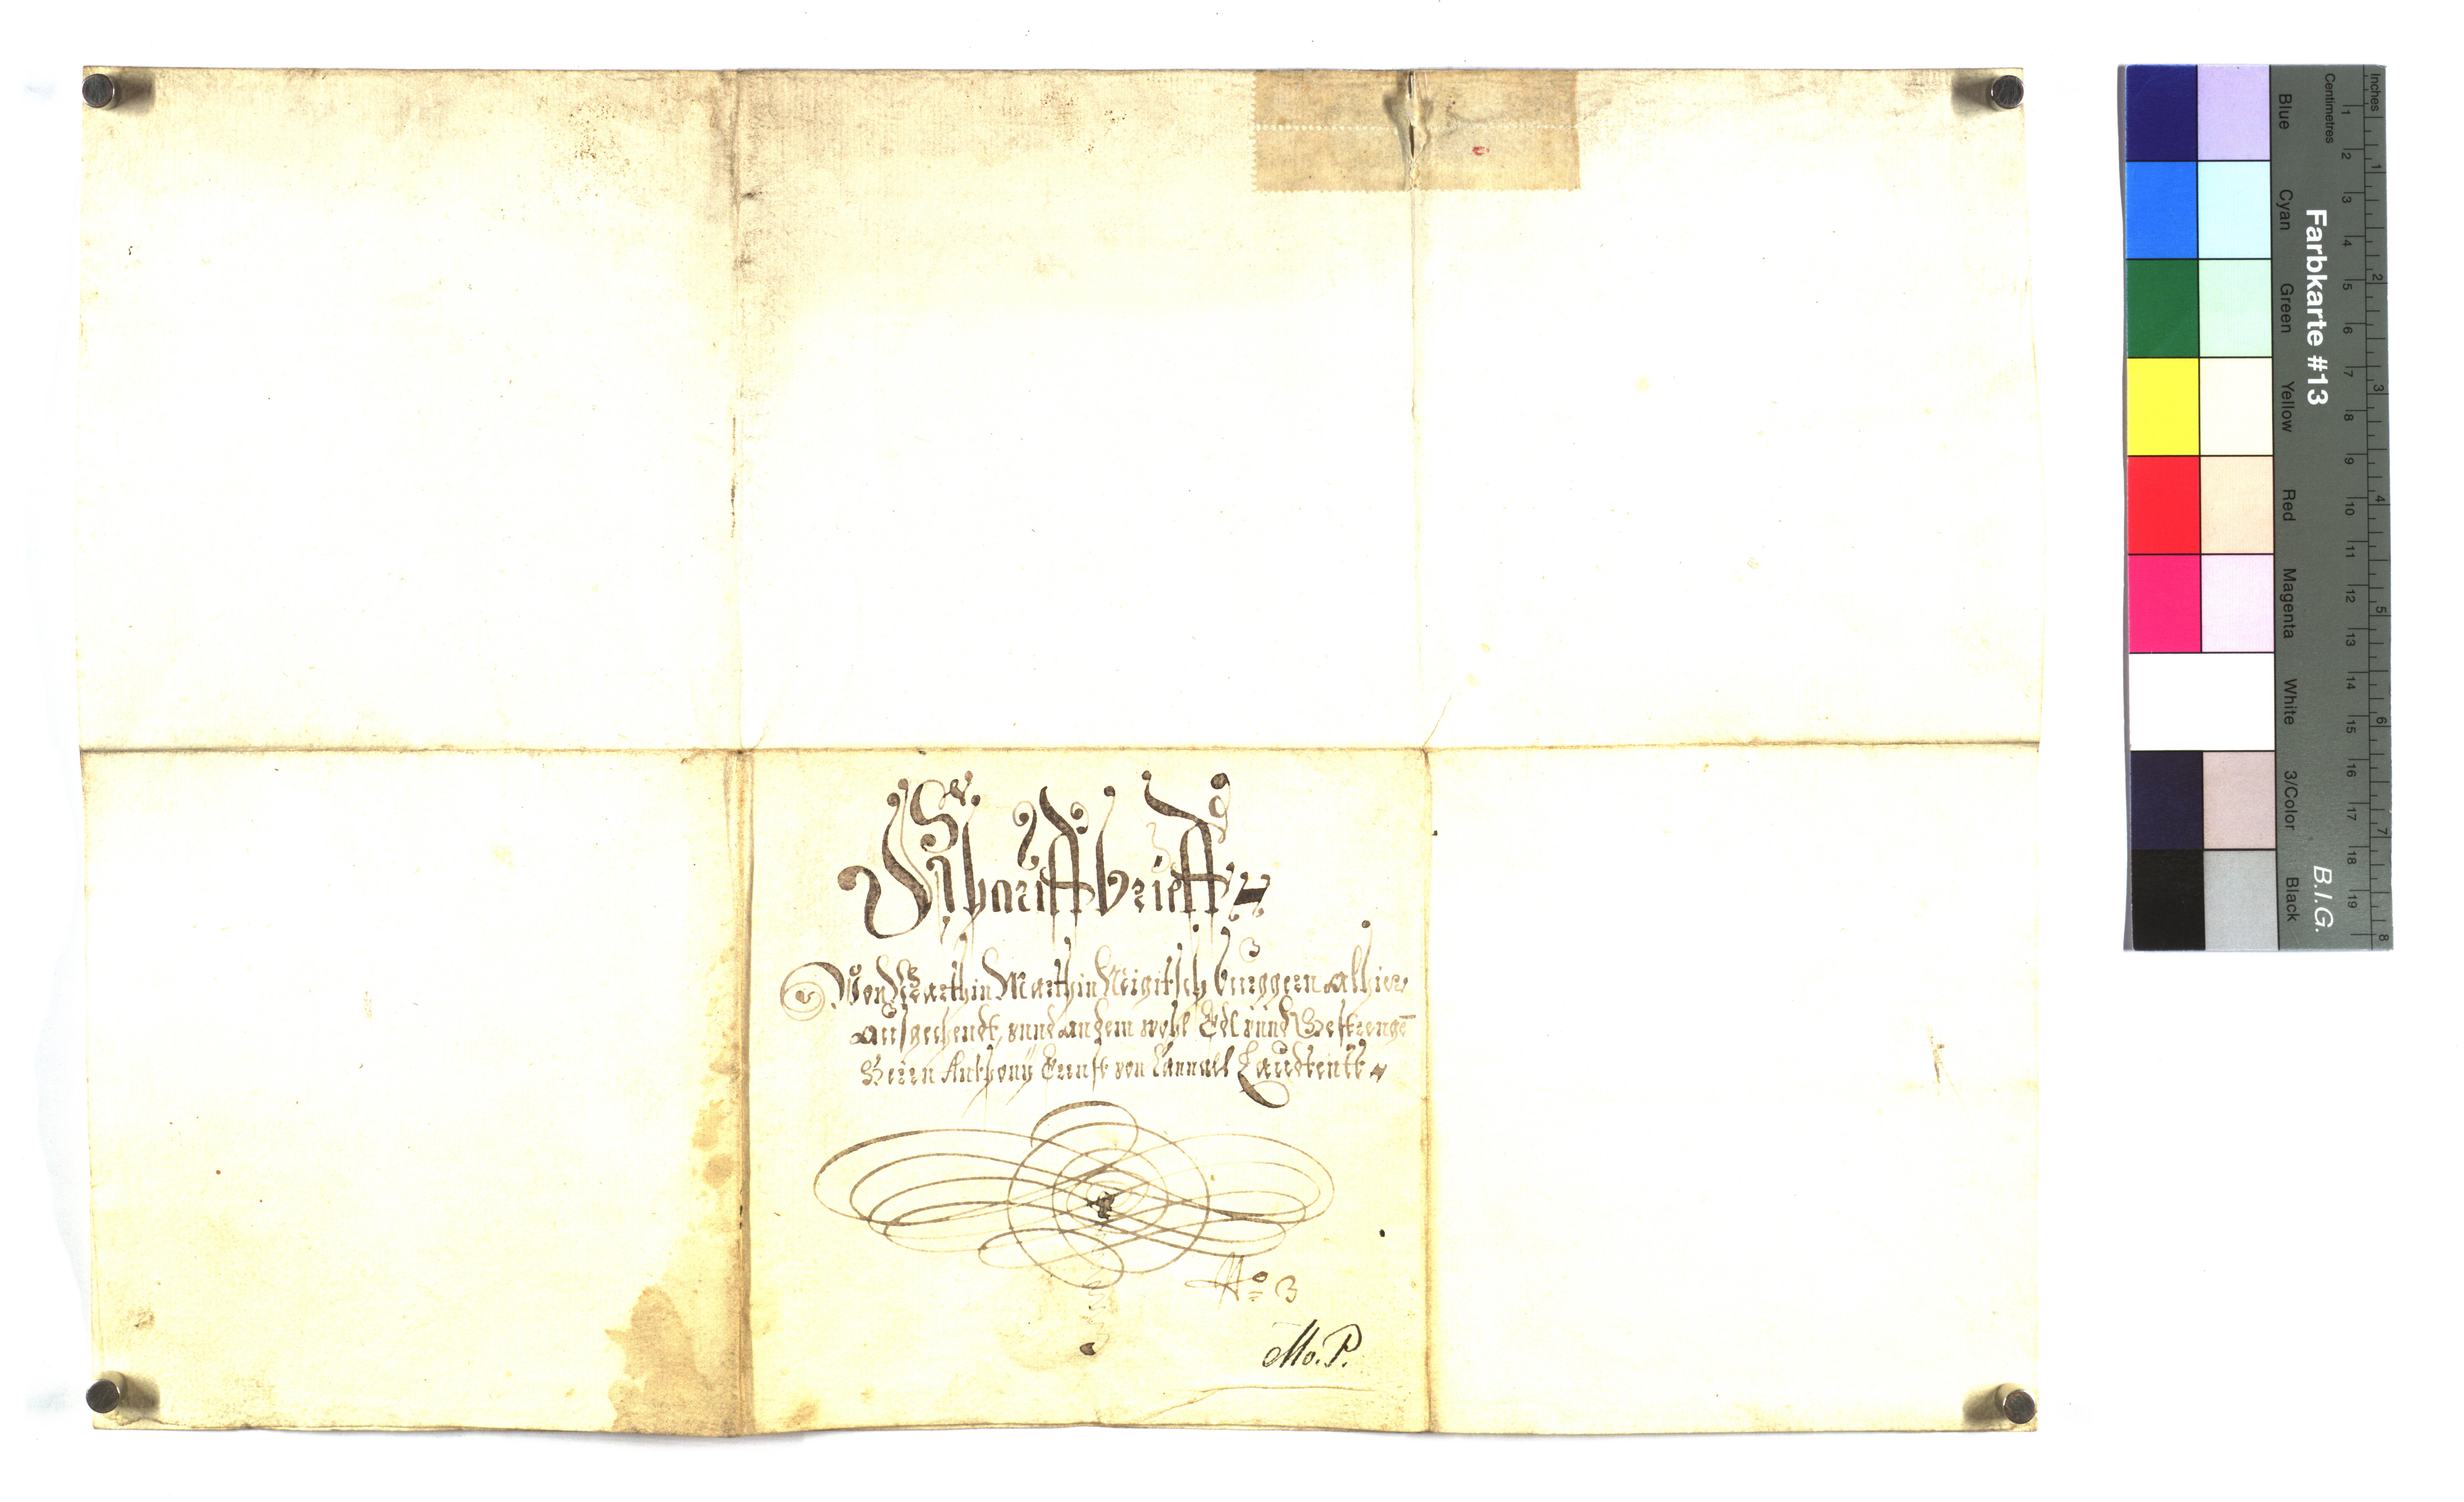 Schirmbrieff
Von Marthin Neigitsch burggern alhier
ausgehendt, unnd an dem wohl Edl unnd Gestrenge
Herrn Anthony Ernst von
No 3
Mo. P.
Inches
Centimetres
1 2 3 4 5 6 7 8 9 10 11 12 13 14 15 16 17 18 19
1 2 3 4 5 6 7 8
Farbkarte #13
B.I.G.
Blue
Cyan
Green
Yellow
Red
Magenta
White
3/Color
Black